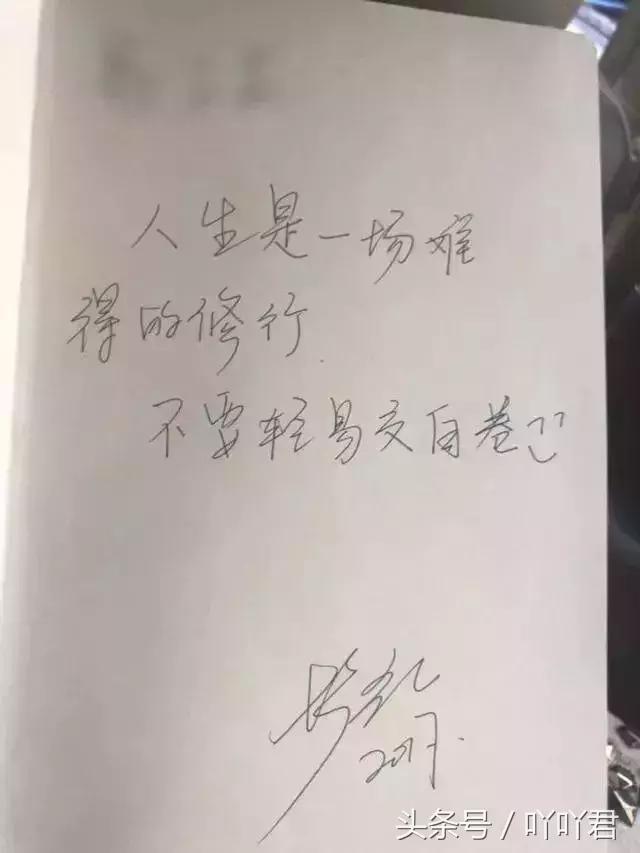 人生是一场难
得的修行.
不要轻易交白卷
2017.
头条号／吖吖君